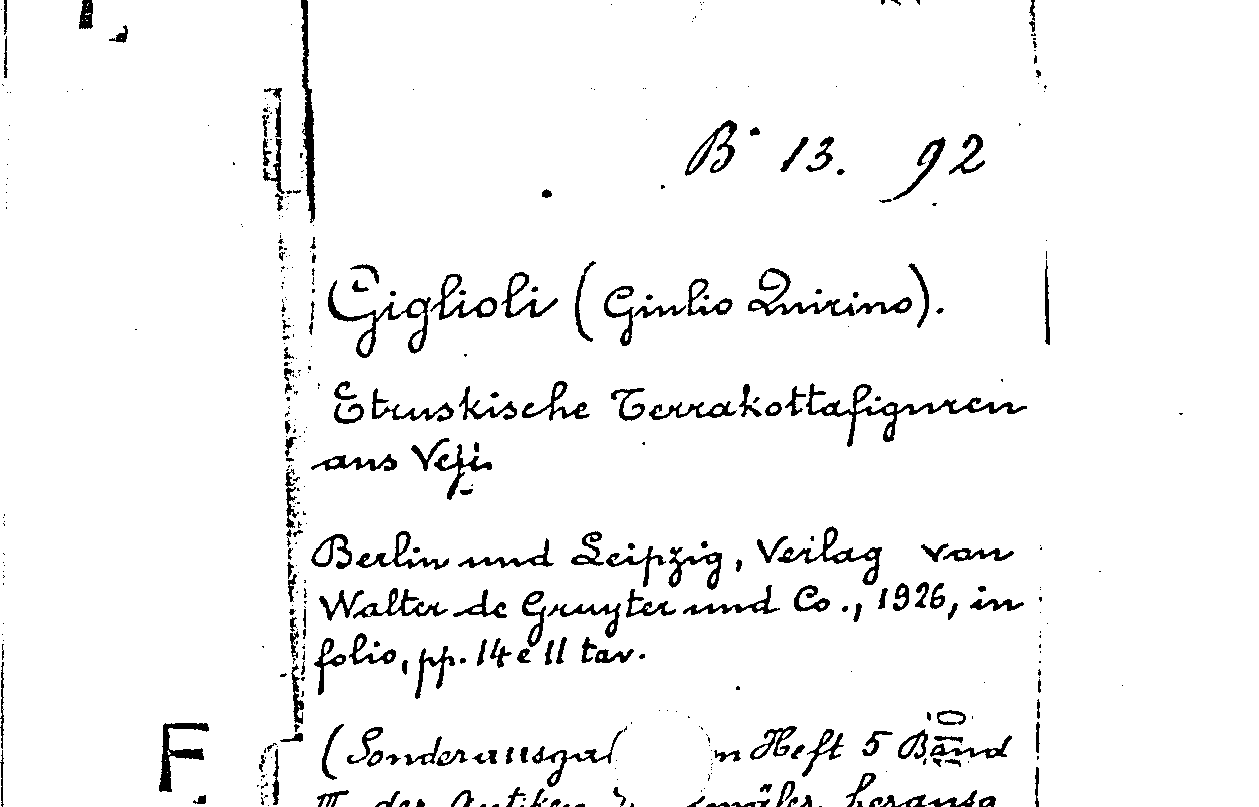 B 13. 92
Giglioli (Giulio Quirino).
Etruskische Terrakottafiguren
aus Veji.
Berlin und Leipzig, Verlag von
Walter de Gruyter und Co., 1926, in
folio, pp. 14 e 11 tav.
(Sonderausga Heft 5 Band
F
III der Antiken herausg